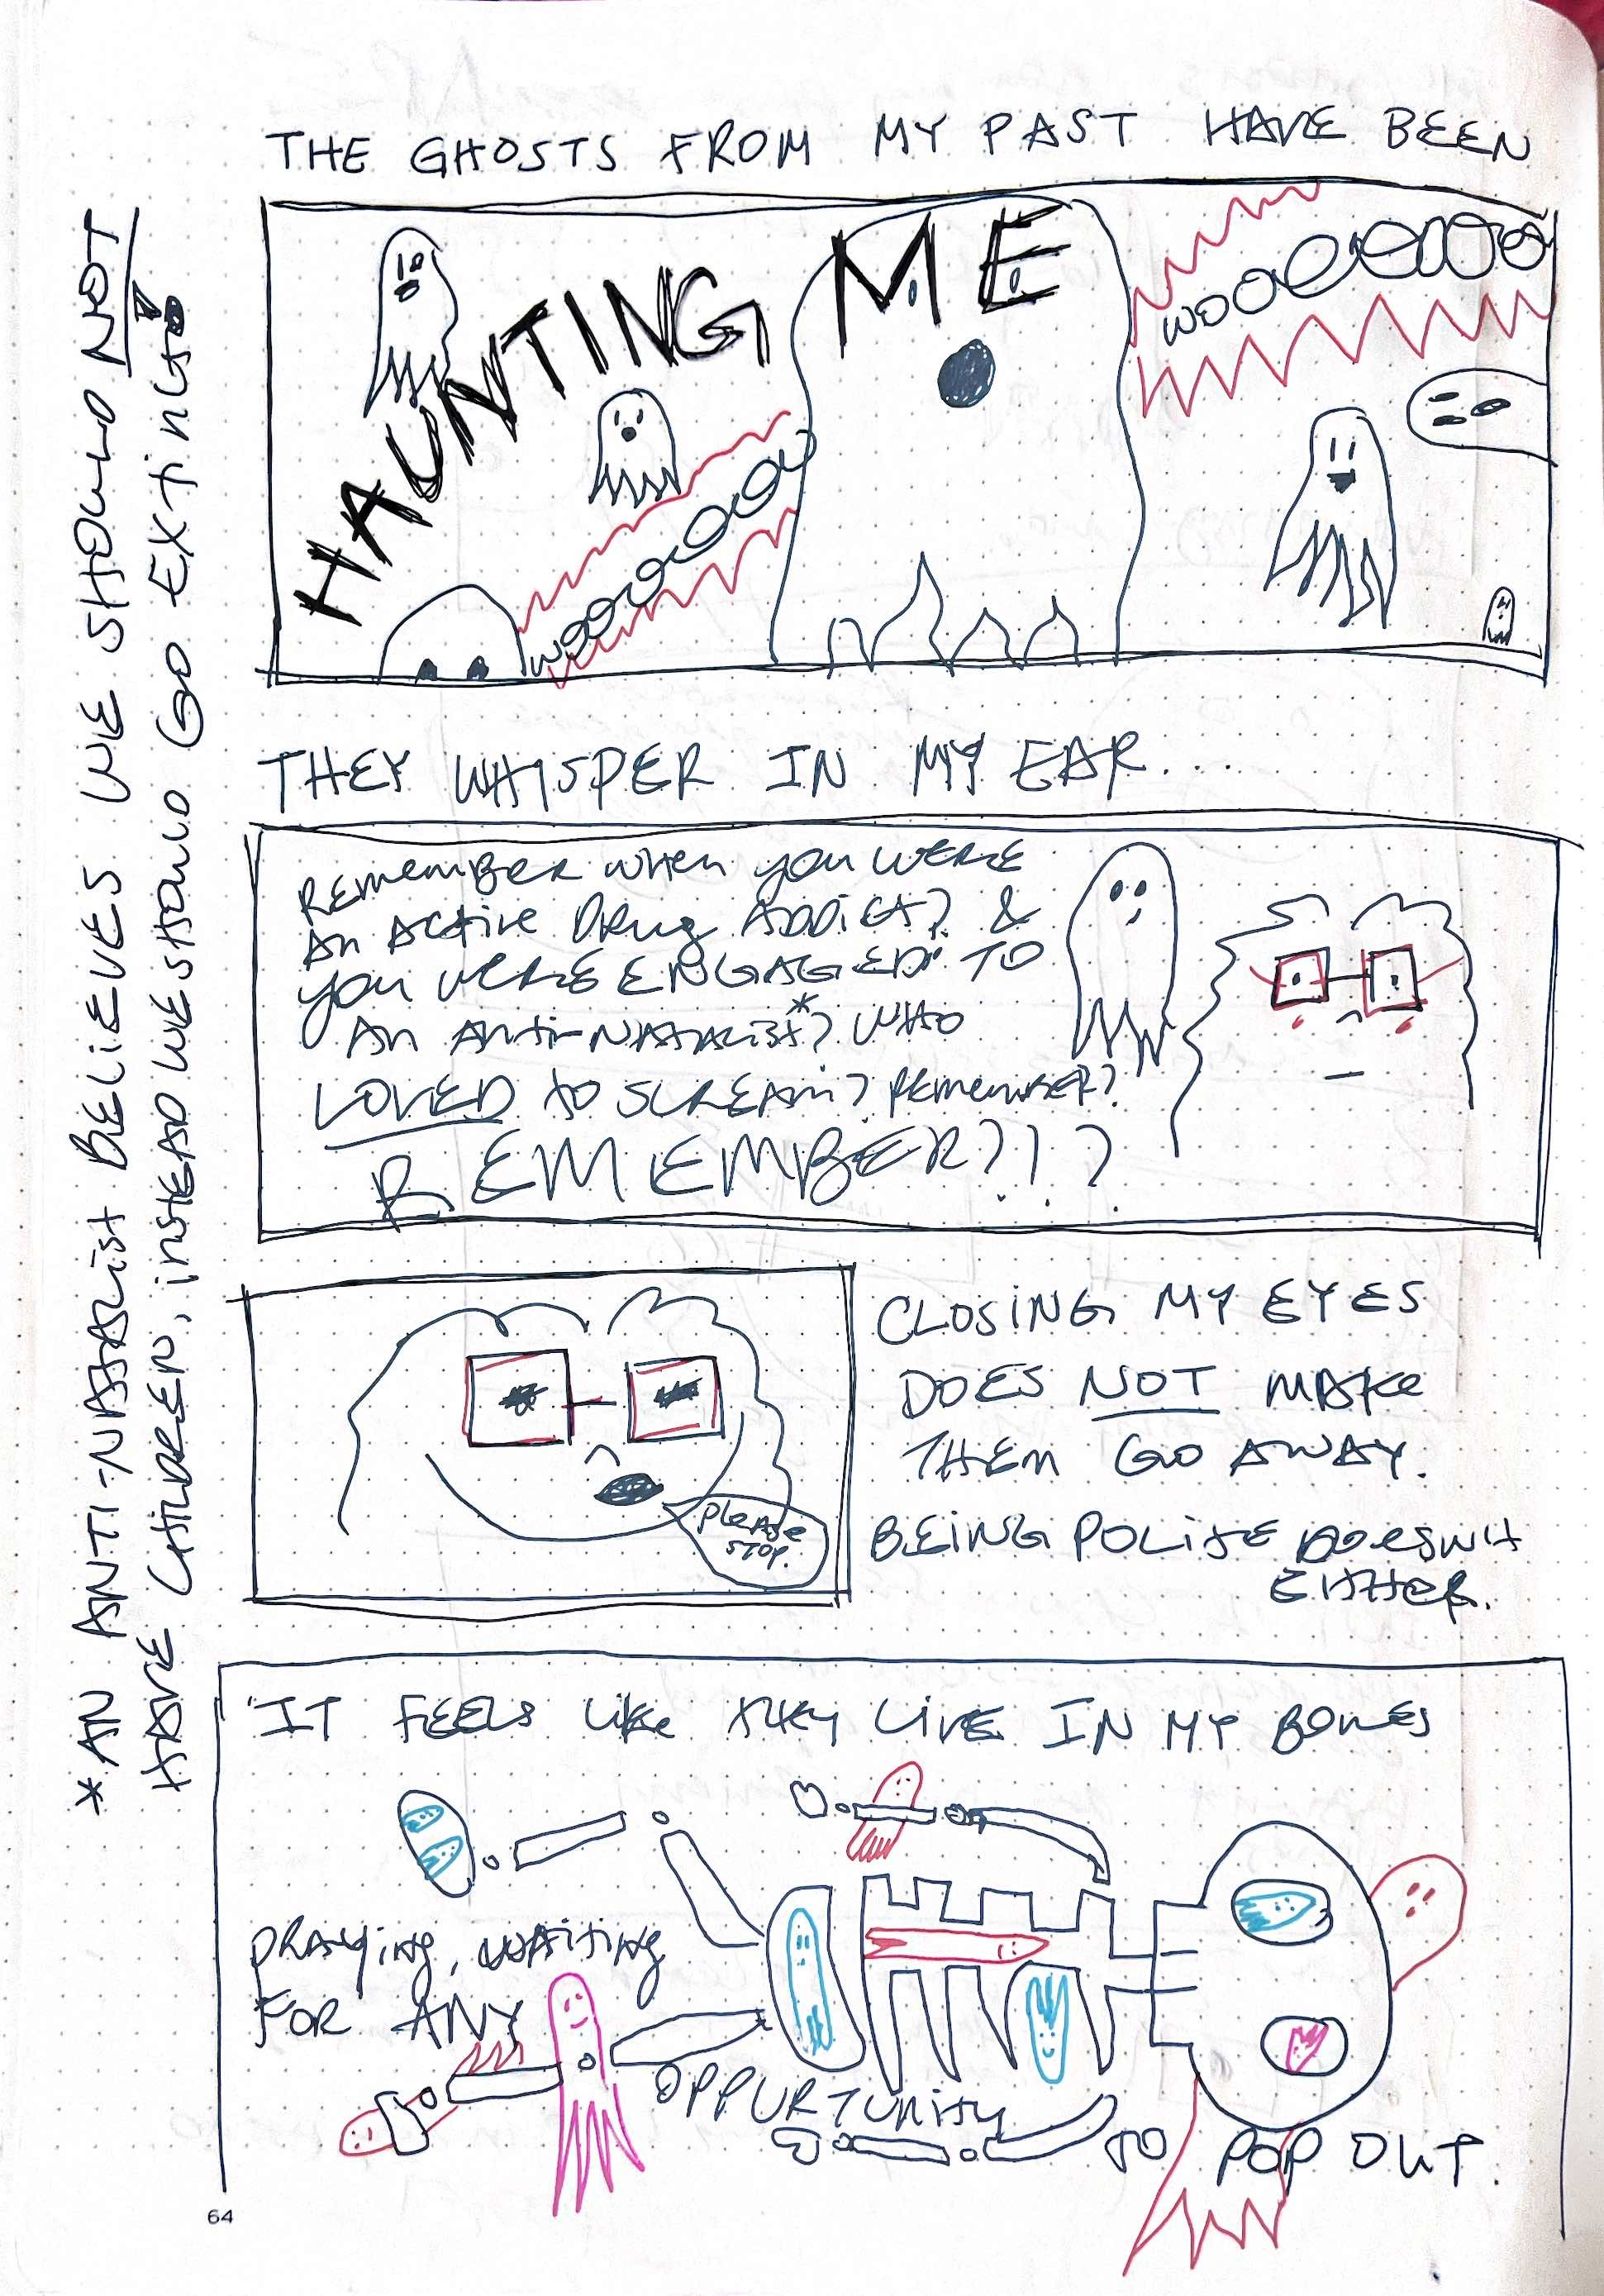 THE GHOSTS FROM MY PAST HAVE BEEN
HAUNTING ME
WOOOOOOOO
WOOOOOOOOO
THEY WHISPER IN MY EAR...
REMEMBER WHEN YOU WERE
AN ACTIVE DRUG ADDICT? &
YOU WERE ENGAGED TO
AN ANTI-NATALIST*? WHO
LOVED TO SCREAM? REMEMBER?
REMEMBER?!?
CLOSING MY EYES
DOES NOT MAKE
THEM GO AWAY.
BEING POLITE DOESN'T
EITHER.
PLEASE
STOP.
IT FEELS LIKE THEY LIVE IN MY BONES
PRAYING, WAITING
FOR ANY
OPPURTUNITY
TO POP OUT.
*AN ANTI-NATALIST BELIEVES WE SHOULD NOT
HAVE CHILDREN, INSTEAD WE SHOULD GO EXTINCT!
64